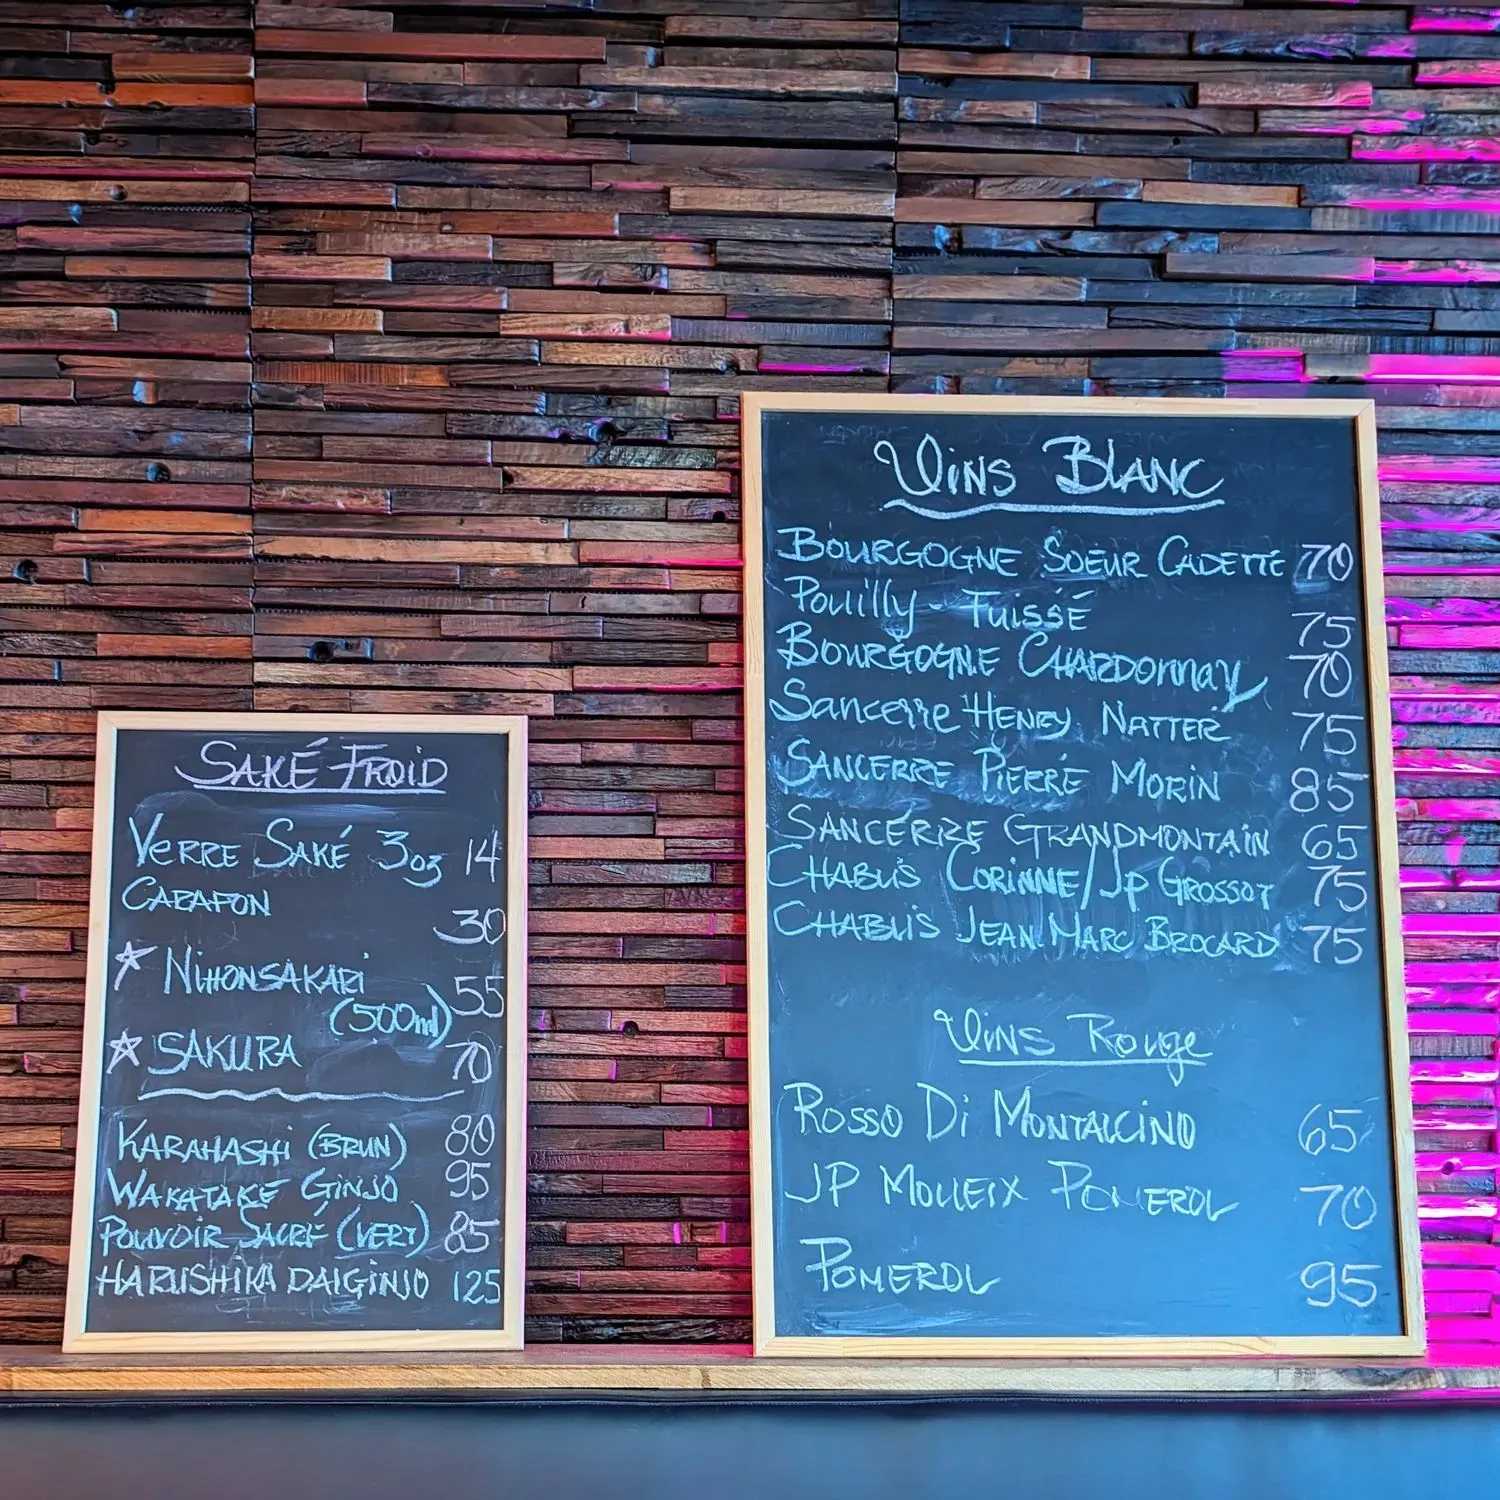 Saké Froid
Verre Saké 3oz 14
Carafon 30
Nihonsakari 55
(500ml)
Sakura 70
Karahashi (Brun) 80
Wakataké Ginjo 95
Pouvoir Sacré (Vert) 85
Harushika Daiginjo 125
Vins Blanc
Bourgogne Soeur Cadette 70
Pouilly-Fuissé 75
Bourgogne Chardonnay 70
Sancerre Henry Natter 75
Sancerre Pierre Morin 85
Sancerre Grandmontain 65
Chablis Corinne/Jp Grossot 75
Chablis Jean-Marc Brocard 75
Vins Rouge
Rosso Di Montalcino 65
JP Moueix Pomerol 70
Pomerol 95